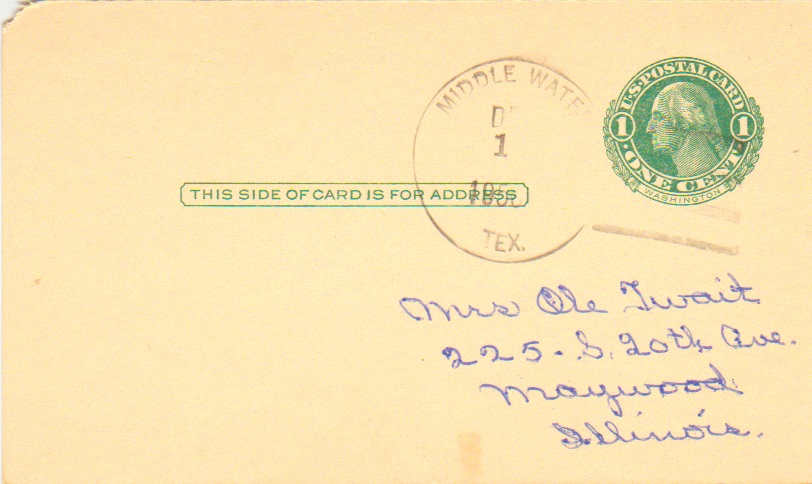 MIDDLE WATE
1
TEX.
U.S. POSTAL CARD
1 1
ONE CENT
WASHINGTON
THIS SIDE OF CARD IS FOR ADDRESS
Mrs Ole Twait
225. S. 20th Ave.
Maywood
Illinois.